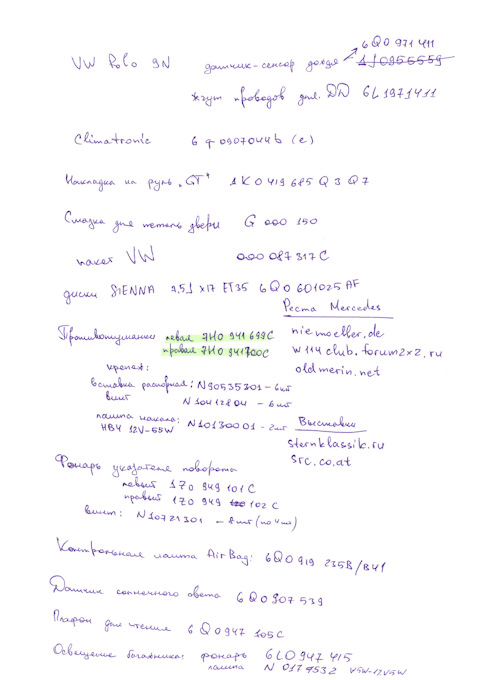 6Q0 971 411
VW Polo 9N датчик-сенсор дождя 1J0955559
жгут проводов дат. DD 6L1971411
Climatronic 6q0907044b (e)
Накладка на руль "GT" 1K0 419 685 Q 3Q7
Смазка для петель двери G 000 150
пакет VW 000 087 317 C
диски SIENNA 7,5J x17 ET35 6Q0 601025 AF
Реста Mercedes
Противотуманки левая 7H0 941 699C
правая 7H0 941700C
niemoeller.de
w114club.forum2x2.ru
oldmerin.net
крепеж:
вставка распорная: N90535301 - 6шт
винт N10412804 - 6шт
лампа накала: N10130001 - 2шт
HB4 12V-55W
Выставки
sternklassik.ru
src.co.at
Фонарь указателя поворота
левый 1Z0 949 101 C
правый 1Z0 949 102 C
винт: N10721301 - 8шт (по 4шт)
Контрольная лампа AirBag: 6Q0 919 235B/B41
Датчик солнечного света 6Q0 907 539
Плафон для чтения 6Q0947 105C
Освещение багажника: фонарь 6L0947415
лампа N 0179532